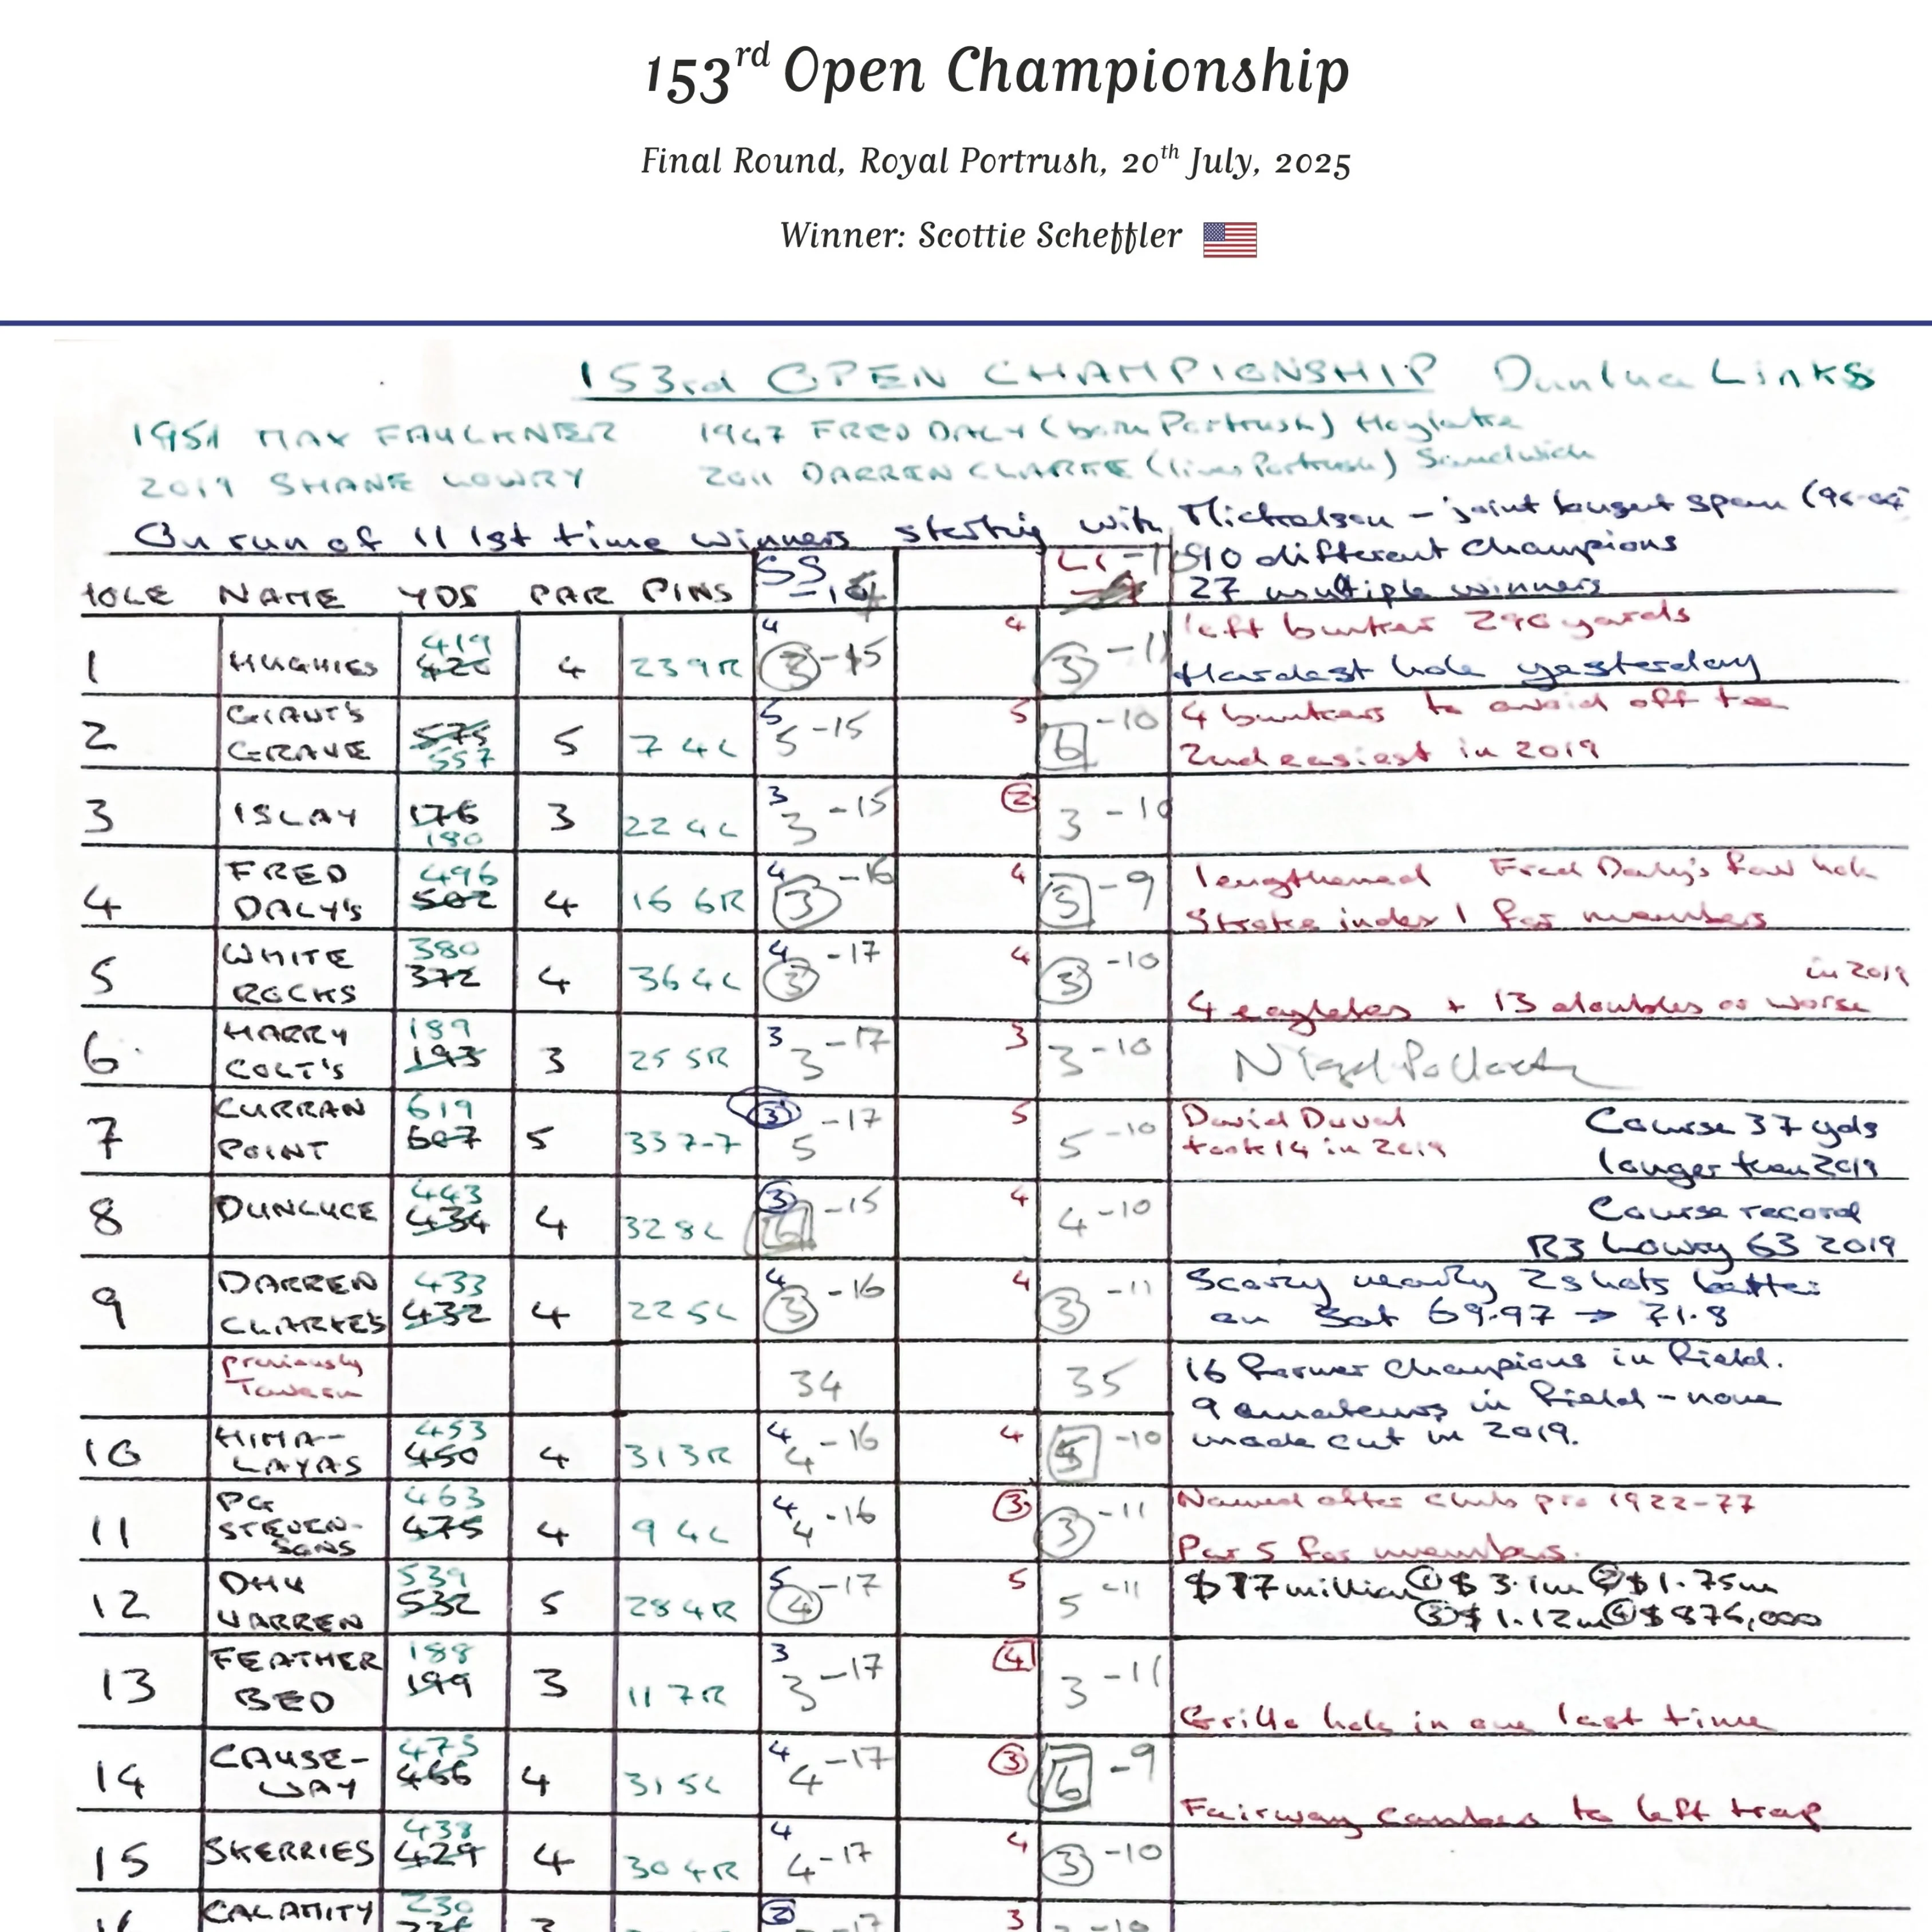 153rd Open Championship
Final Round, Royal Portrush, 20th July, 2025
Winner: Scottie Scheffler
153rd OPEN CHAMPIONSHIP Dunluce Links
1951 MAX FAULKNER 1947 FRED DALY (born Portrush) Hoylake
2019 SHANE LOWRY 2011 DARREN CLARKE (lives Portrush) Sandwich
On run of 11 1st time winners starting with Mickelson - joint longest span
10 different champions
27 multiple winners
HOLE NAME YDS PAR PINS SS
left bunker 290 yards
1 HUGHIES 419 426 4 23 9R 4 3 -15 4 3 -11 Hardest hole yesterday
2 GIANT'S GRAVE 575 557 5 7 4L 5 5 -15 5 6 -10 4 bunkers to avoid off tee
2nd easiest in 2019
3 ISLAY 176 180 3 22 4L 3 3 -15 2 3 -10
4 FRED DALY'S 496 502 4 16 6R 4 3 -16 4 5 -9 lengthened Fred Daly's fav hole
Stroke index 1 for members
5 WHITE ROCKS 380 372 4 36 4L 4 3 -17 4 3 -10 in 2019
4 eagles + 13 doubles or worse
6 HARRY COLT'S 189 193 3 25 5R 3 3 -17 3 3 -10 Nigel Pollock
7 CURRAN POINT 619 607 5 33 7-7 3 5 -17 5 5 -10 David Duval took 14 in 2019
Course 37 yds longer than 2019
8 DUNLUCE 443 434 4 32 8L 3 6 -15 4 4 -10 Course record
R3 Lowry 63 2019
9 DARREN CLARKE'S 433 432 4 22 5L 4 3 -16 4 3 -11 Scory nearly 2 shots better
on Sat 69.97 → 71.8
previously Tavern 34 35 16 former champions in field.
9 amateurs in field - none
made cut in 2019.
10 HIMA-LAYAS 453 450 4 31 3R 4 4 -16 4 5 -10
11 PG STEVEN-SONS 463 475 4 9 4L 4 4 -16 3 3 -11 Named after club pro 1922-77
Par 5 for members.
12 DHU VARREN 539 532 5 28 4R 5 4 -17 5 5 -11 $17 million ① $3.1m ② $1.75m
③ $1.12m ④ $876,000
13 FEATHER BED 188 199 3 11 7R 3 3 -17 4 3 -11
Grillo hole in one last time
14 CAUSE-WAY 473 466 4 31 5L 4 4 -17 3 6 -9
Fairway cambers to left trap
15 SKERRIES 438 429 4 30 4R 4 4 -17 4 3 -10
CALAMITY 230 3 2 -17 3 -10